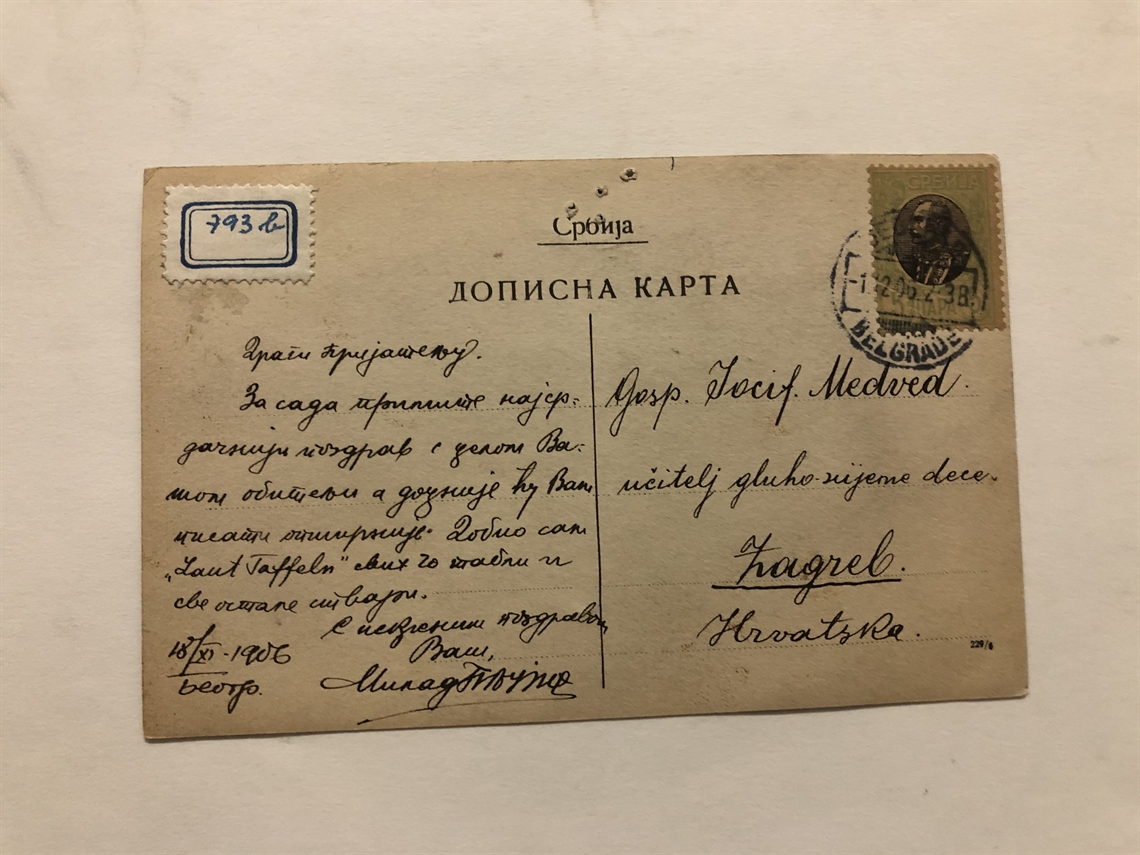 793 b
Србија
ДОПИСНА КАРТА
СРБИЈА
ПАРА
BELGRADE
Драги пријатељу.
За сада примите најср-
дачнији поздрав с целом Ва-
шом обитељи а доцније ћу Вам
писати опширније. Добио сам
„Laut Taffeln" свих 20 табли и
све остале ствари.
С искреним поздравом
Ваш,
18/XI - 1906
Београ.
Милад
Gosp. Jocif. Medved.
učitelj gluho-nijeme dece.
Zagreb.
Hrvatska.
229/6